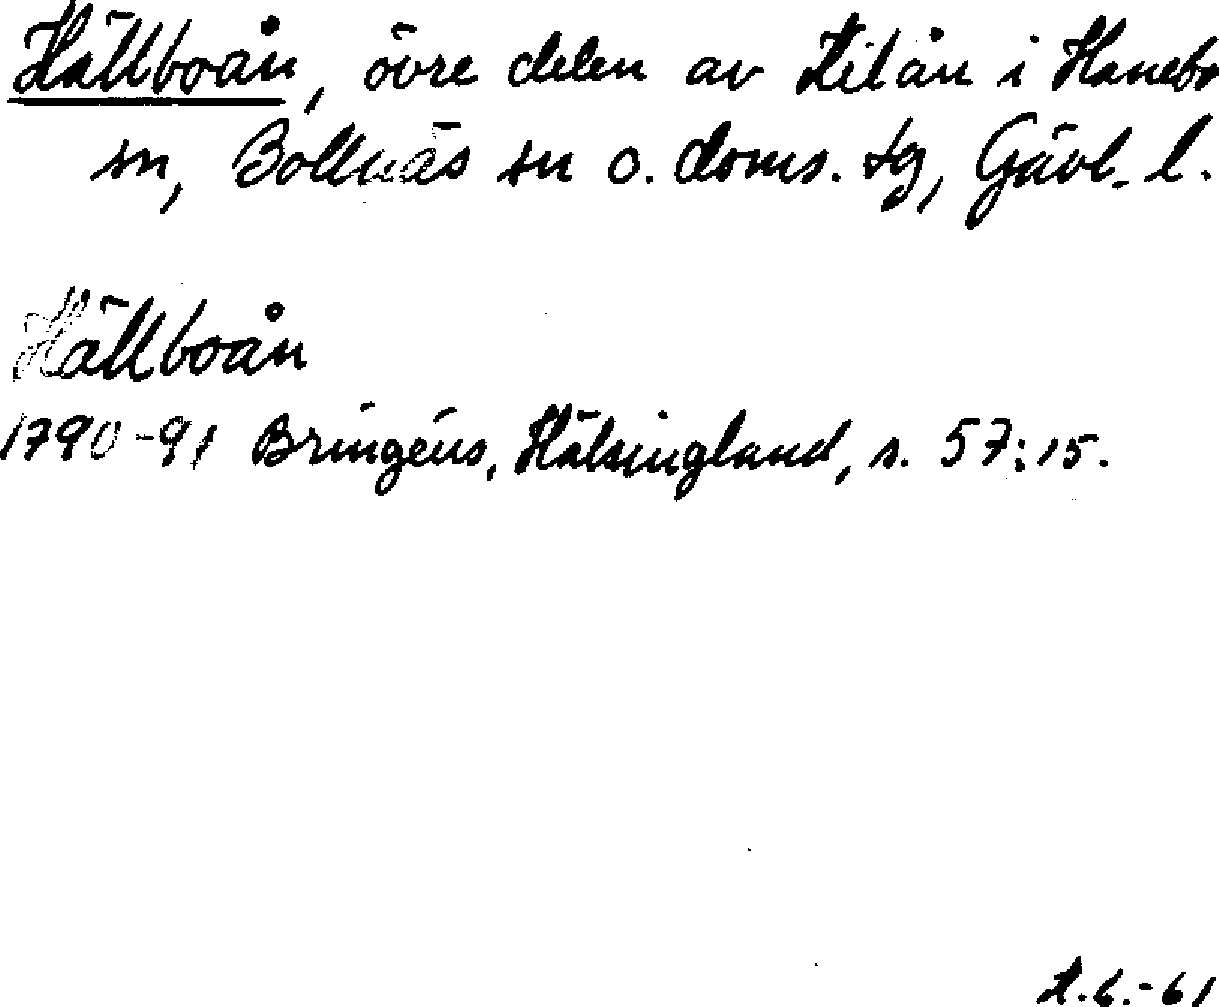 Hällboån, övre delen av Kilån i Hanebo
sn, Bollnäs sn o. doms. tg, Gävl. l.
Hällboån
1790-91 Bringéus, Hälsingland, s. 57:15.
-61